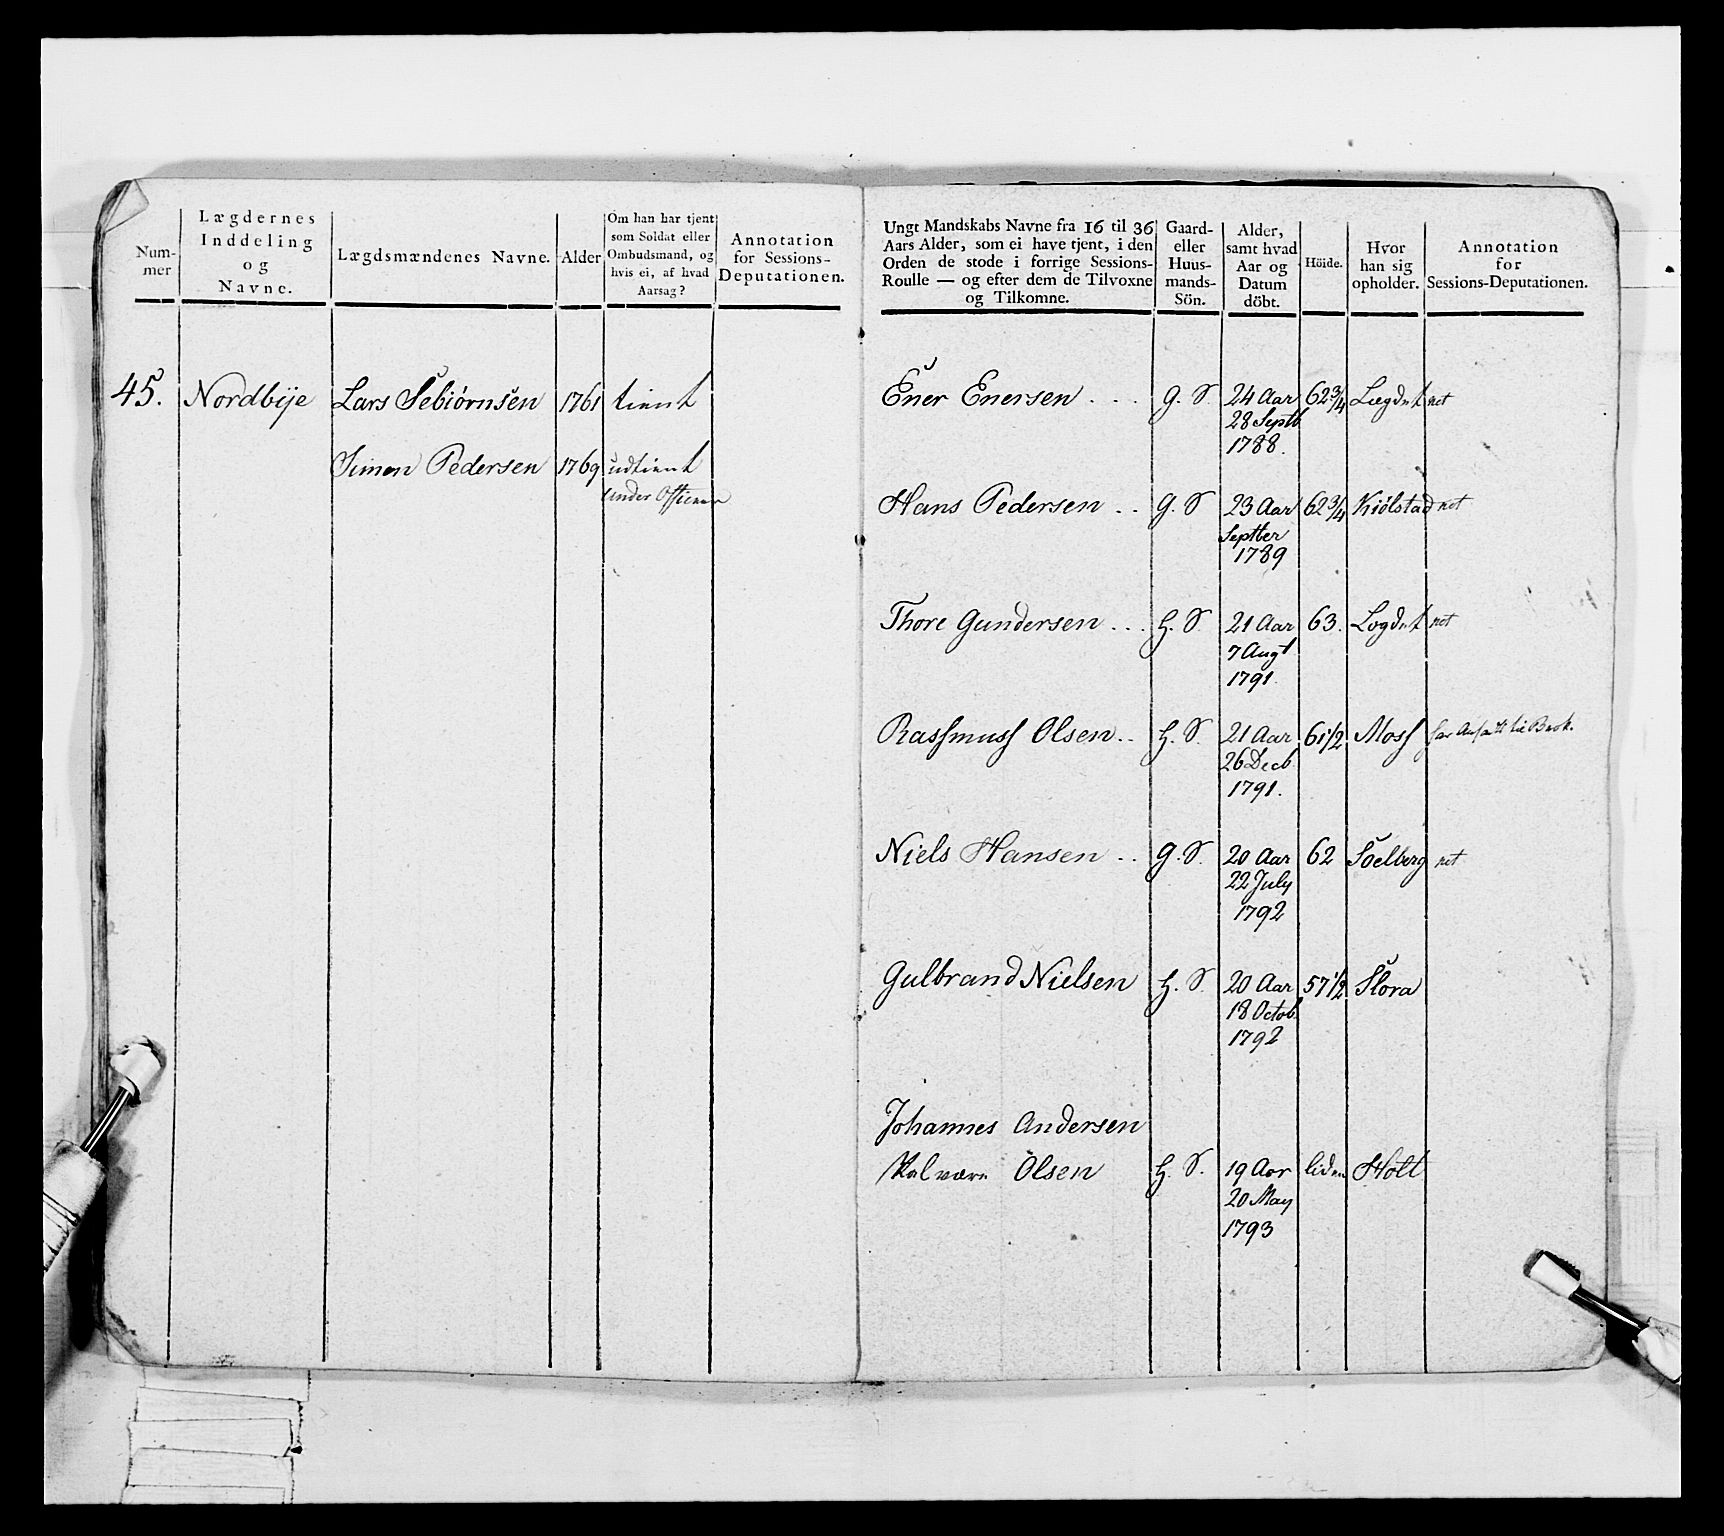 Num-
mer
Lægdernes
Inddeling
og
Navne.
Lægdsmændenes Navne.
Alder
Om han har tjent
som Soldat eller
Ombudsmand, og
hvis ei, af hvad
Aarsag?
Annotation
for Sessions-
Deputationen.
45. Nordbye Lars Sebiørnsen 1761 tient
Simen Pedersen 1769 udtient
under Officeer
Ungt Mandskabs Navne fra 16 til 36
Aars Alder, som ei have tjent, i den
Orden de stode i forrige Sessions-
Roulle — og efter dem de Tilvoxne
og Tilkomne.
Gaard-
eller
Huus-
mands-
Sön.
Alder,
samt hvad
Aar og
Datum
döbt.
Höide.
Hvor
han sig
opholder.
Annotation
for
Sessions-Deputationen.
Ener Enersen . . . G. S. 24 Aar 62 3/4 Lægdet
28 Septb
1788.
Hans Pedersen . . G. S 23 Aar 62 3/4 Kiølstad
Septber
1789
Thore Gundersen . . . H. S. 21 Aar 63. Logdet
7 Augt
1791.
Rassmuss Olsen . . H. S. 21 Aar 61 1/2 Moss
26 Decb
1791.
Niels Hansen . . G. S. 20 Aar 62 Soelberg
22 July
1792
Gulbrand Nielsen H. S. 20 Aar 57 1/2 Slora
18 Octob.
1792
Johannes Andersen
Halvære Olsen H. S. 19 Aar liden Holt
20 May
1793